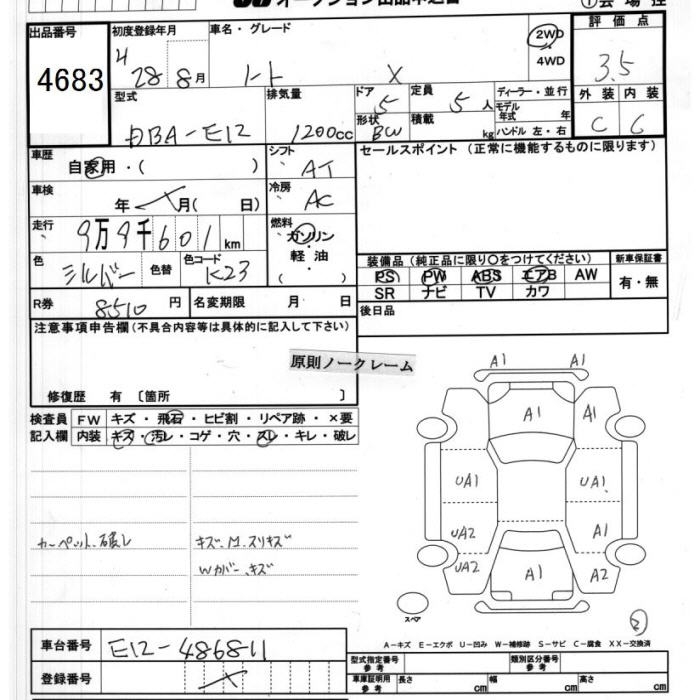 オークション出品申込書
①会場控
出品番号
4683
初度登録年月
H 28 8月
車名・グレード
ノート X
2WD
・
4WD
評価点
3.5
外装 内装
C C
型式
DBA-E12
排気量
1200cc
ドア
5
形状
BW
定員
5人
積載
kg
ディーラー・並行
モデル年式 年
ハンドル 左・右
車歴
自家用・( )
車検
年 月( 日)
走行
9万9千601km
色
シルバー
色替
色コード
K23
シフト
AT
冷房
AC
燃料
ガソリン
軽油
( )
セールスポイント (正常に機能するものに限ります)
装備品 (純正品に限り〇をつけてください)
PS PW ABS エアB AW
SR ナビ TV カワ
新車保証書
有・無
R券 8510円
名変期限 月 日
後日品
注意事項申告欄(不具合内容等は具体的に記入して下さい)
原則ノークレーム
修復歴 有 〔箇所 〕
検査員
記入欄
FW キズ・飛石・ヒビ割・リペア跡・×要
内装 キズ・汚レ・コゲ・穴・スレ・キレ・破レ
カーペット、破レ
キズ、M、スリキズ
Wカバー、キズ
A1 A1
A1 A1
UA1 UA1
UA2 A1
UA2 A1 A2
スペア
②
A-キズ E-エクボ U-凹み W-補修跡 S-サビ C-腐食 XX-交換済
車台番号 E12-486811
登録番号
型式指定番号
参考
類別区分番号
参考
車庫証明用
参考
長さ cm 幅 cm 高さ cm